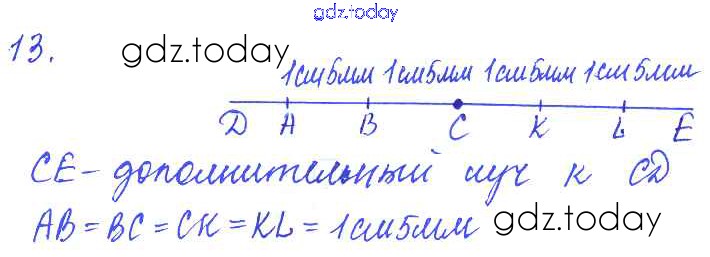 gdz.today
13.
gdz.today
1см5мм 1см5мм 1см5мм 1см5мм
D A B C K L E
CE - дополнительный луч к CD
AB = BC = CK = KL = 1см5мм gdz.today